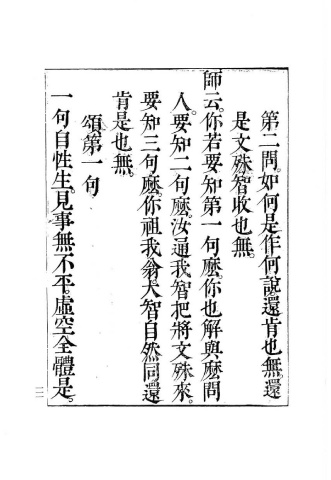 第二問。如何是作何說還肯也無。還
是文殊智收也無。
師云。你若要知第一句麼。你也解與麼問
人。要知二句麼。汝通我智把將文殊來。
要知三句麼。你祖我翁大智自然同還
肯是也無。
頌第一句
一句自性生。見事無不平。虛空全體是。